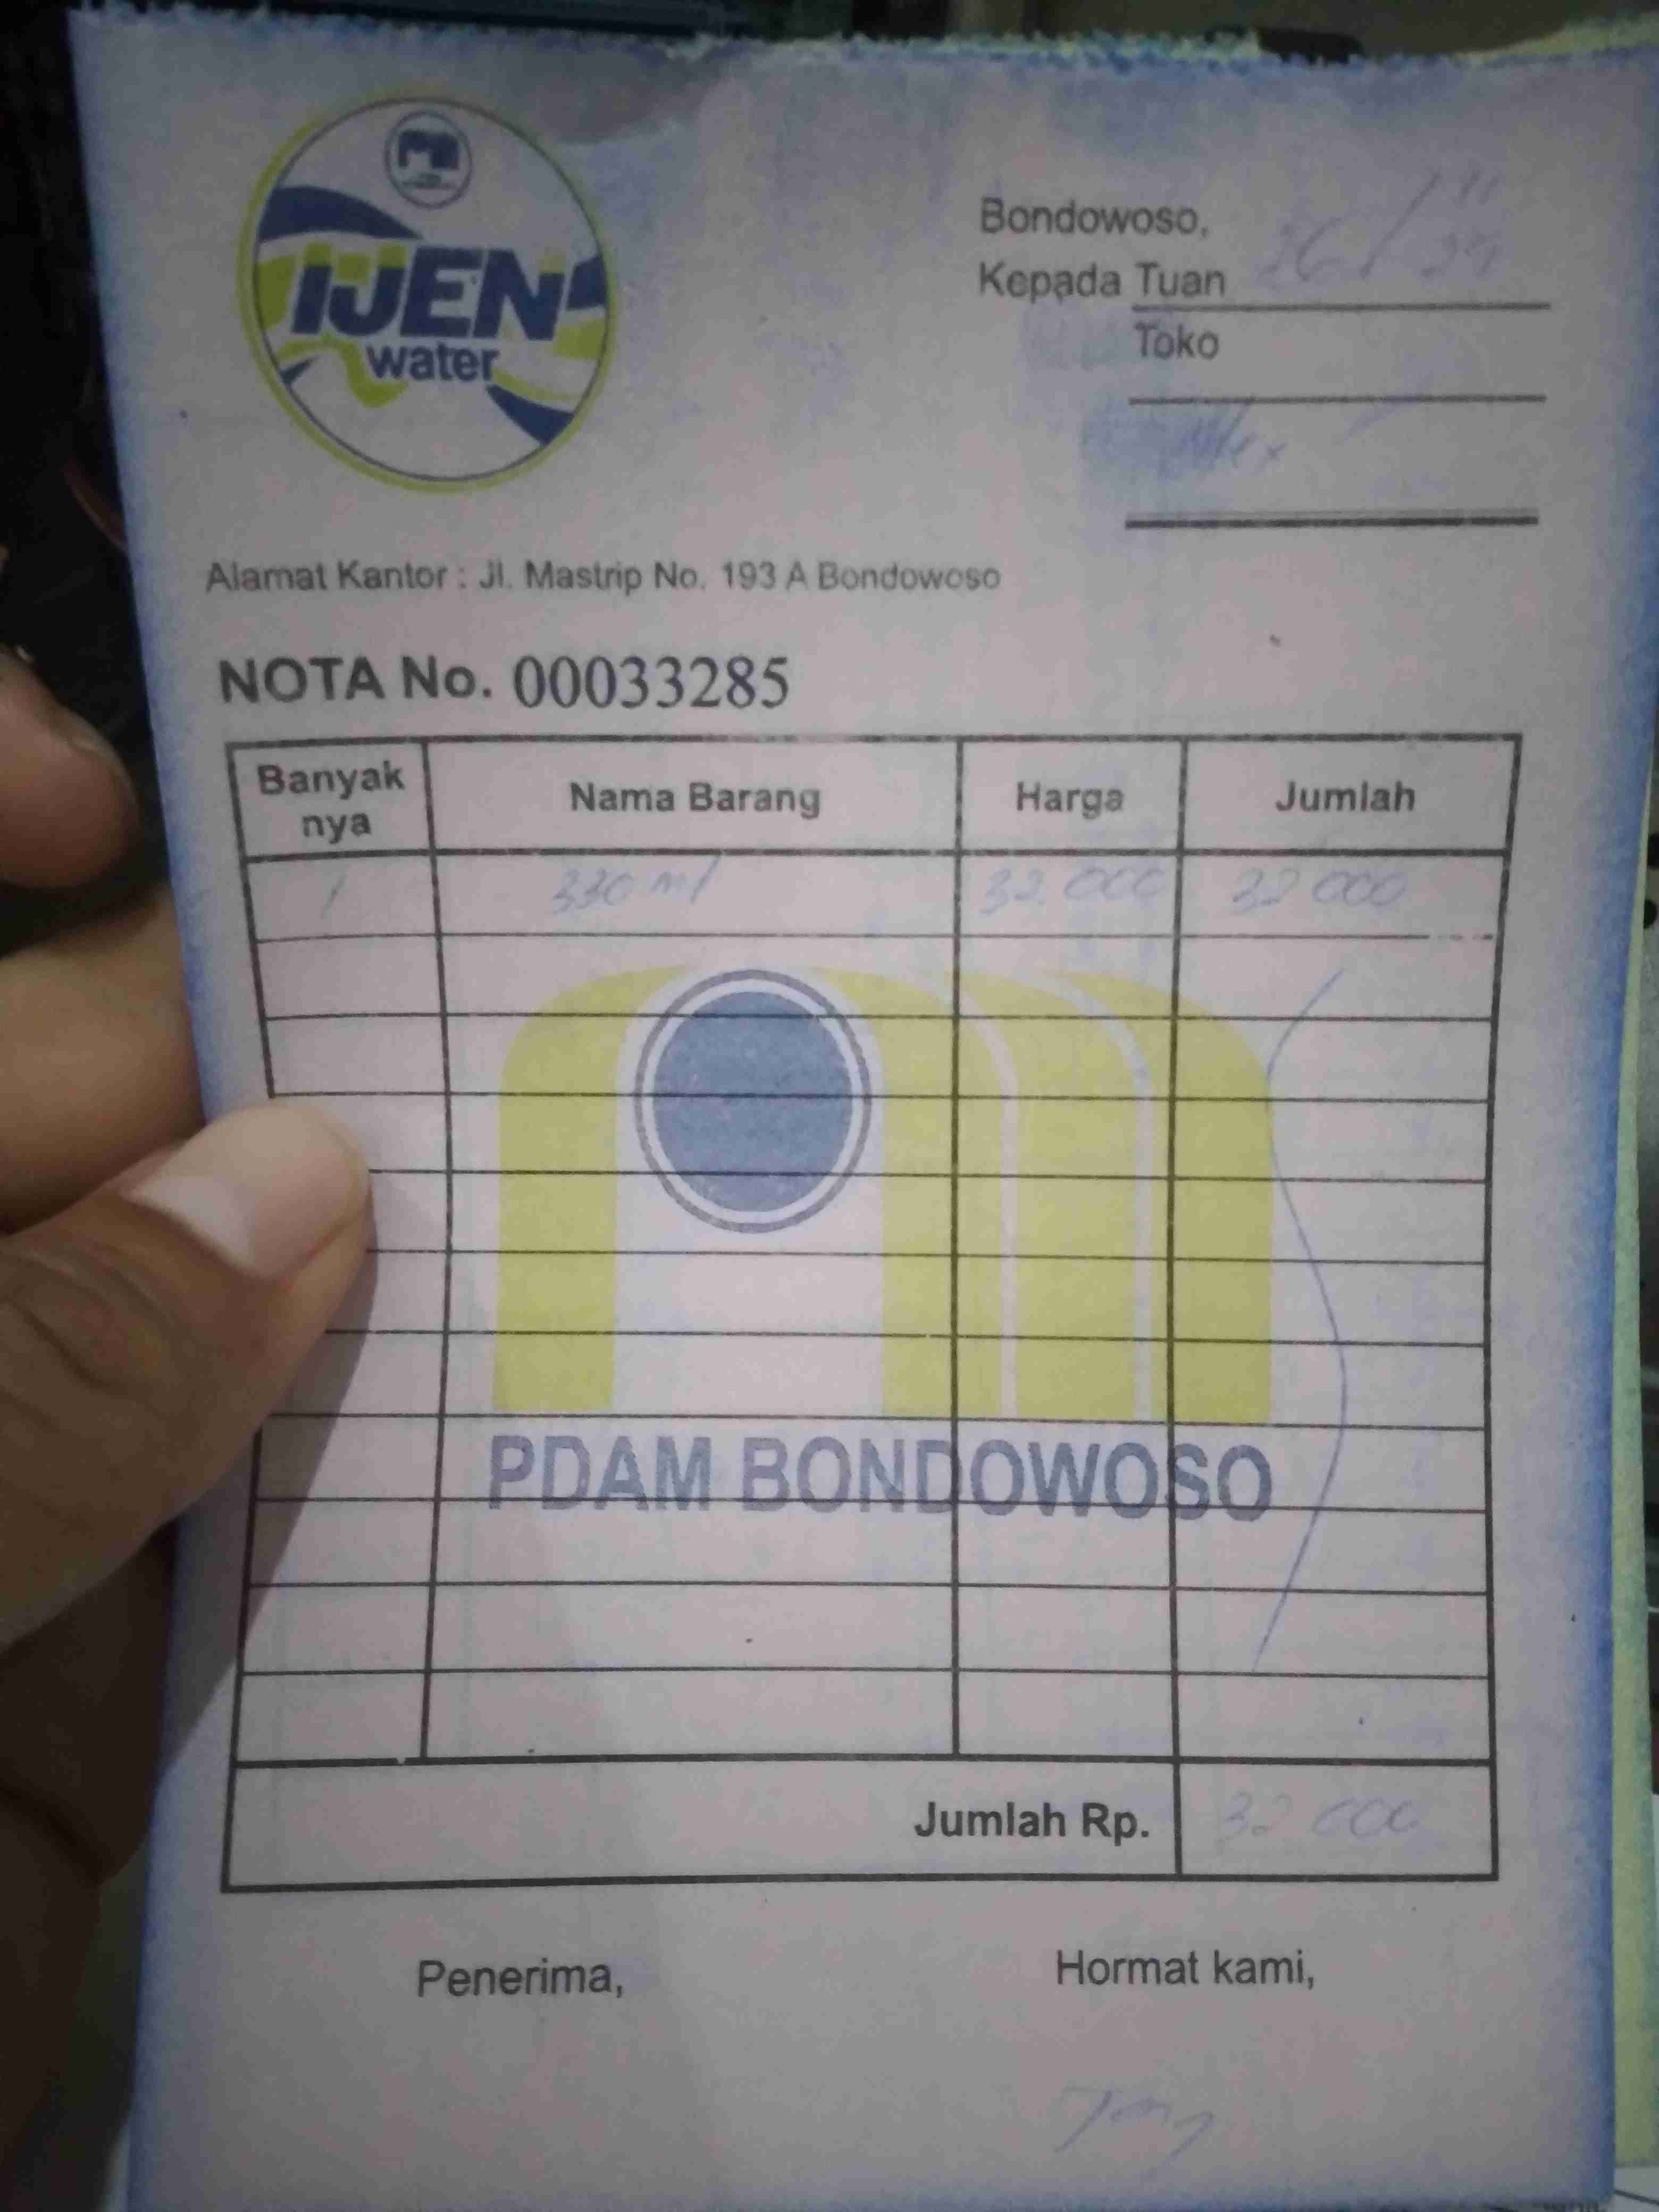 IJEN
water
Bondowoso,
Kepada Tuan
Toko
Alamat Kantor : Jl. Mastrip No. 193 A Bondowoso
NOTA No. 00033285
Banyak nya Nama Barang Harga Jumlah
1 330 ml 32.000 32 000
PDAM BONDOWOSO
Jumlah Rp. 32 000
Penerima, Hormat kami,